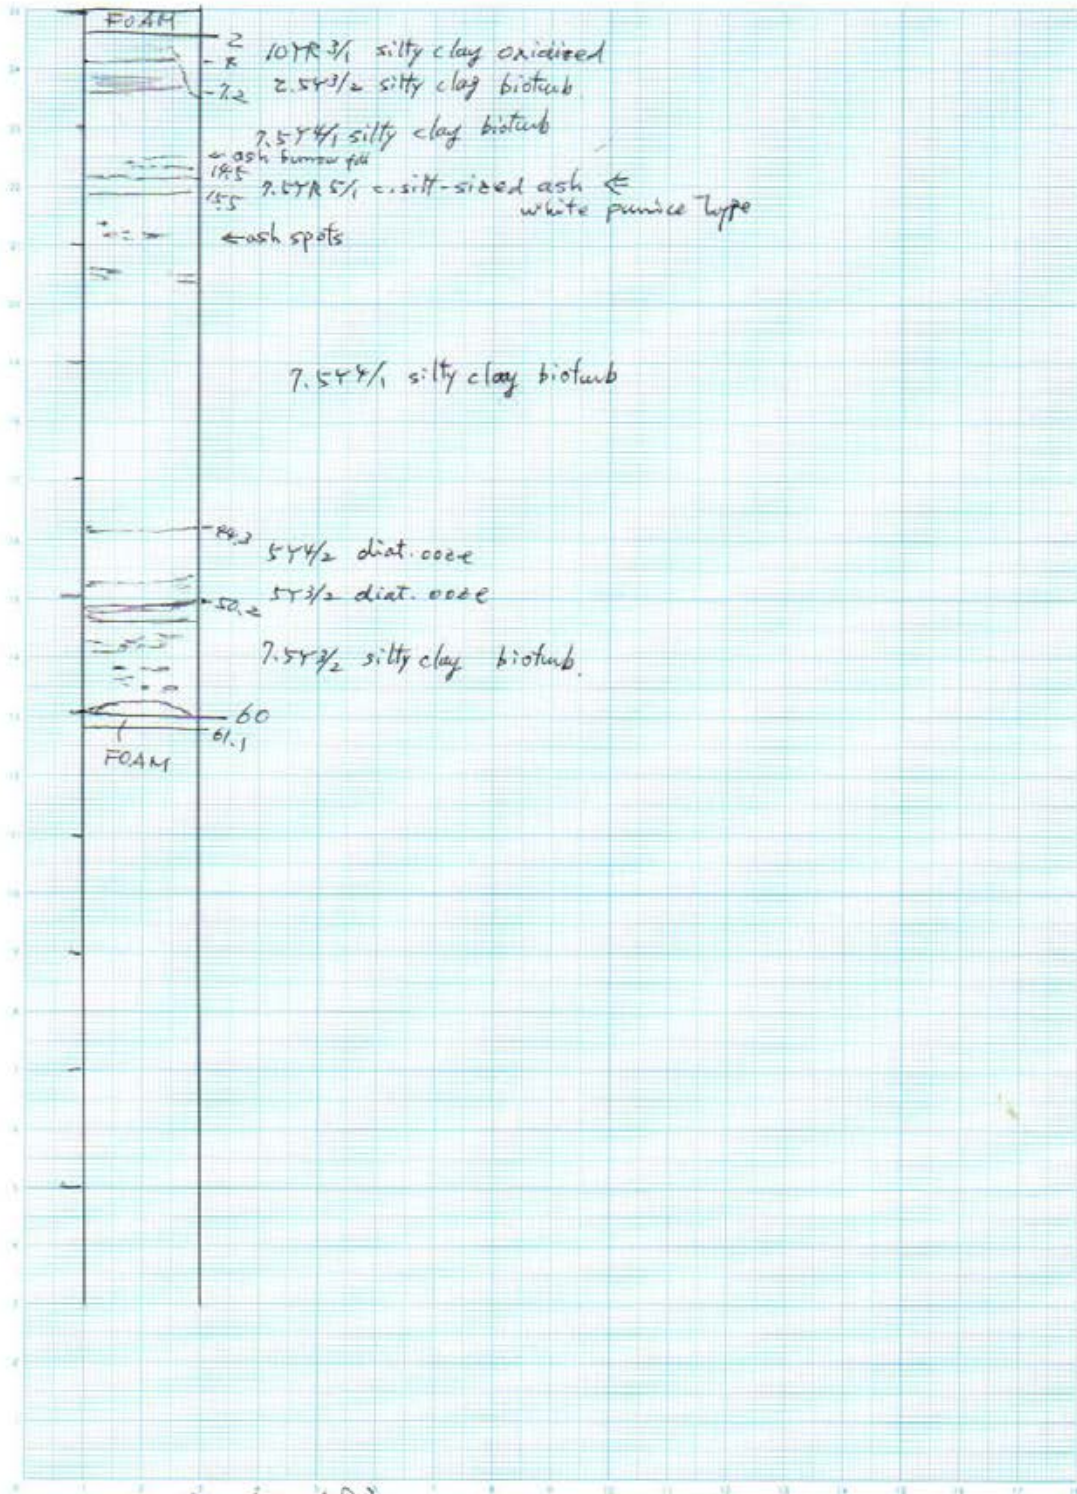 FOAM
2
10YR 3/1 silty clay oxidized
2.5Y 3/2 silty clay bioturb.
7.2
7.5Y 4/1 silty clay bioturb
← ash burrow fill
14.5
7.5YR 5/1 c.silt-sized ash ⇐
15.5
white pumice type
← ash spots
7.5Y 4/1 silty clay bioturb
44.3
5Y 4/2 diat. ooze
5Y 3/2 diat. ooze
50.2
7.5Y 3/2 silty clay bioturb.
60
61.1
FOAM